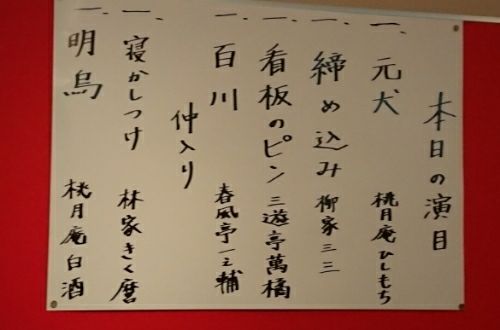 本日の演目
一、元犬 桃月庵ひしもち
一、締め込み 柳家三三
一、看板のピン 三遊亭萬橘
一、百川 春風亭一之輔
仲入り
一、寝かしつけ 林家きく麿
一、明烏 桃月庵白酒